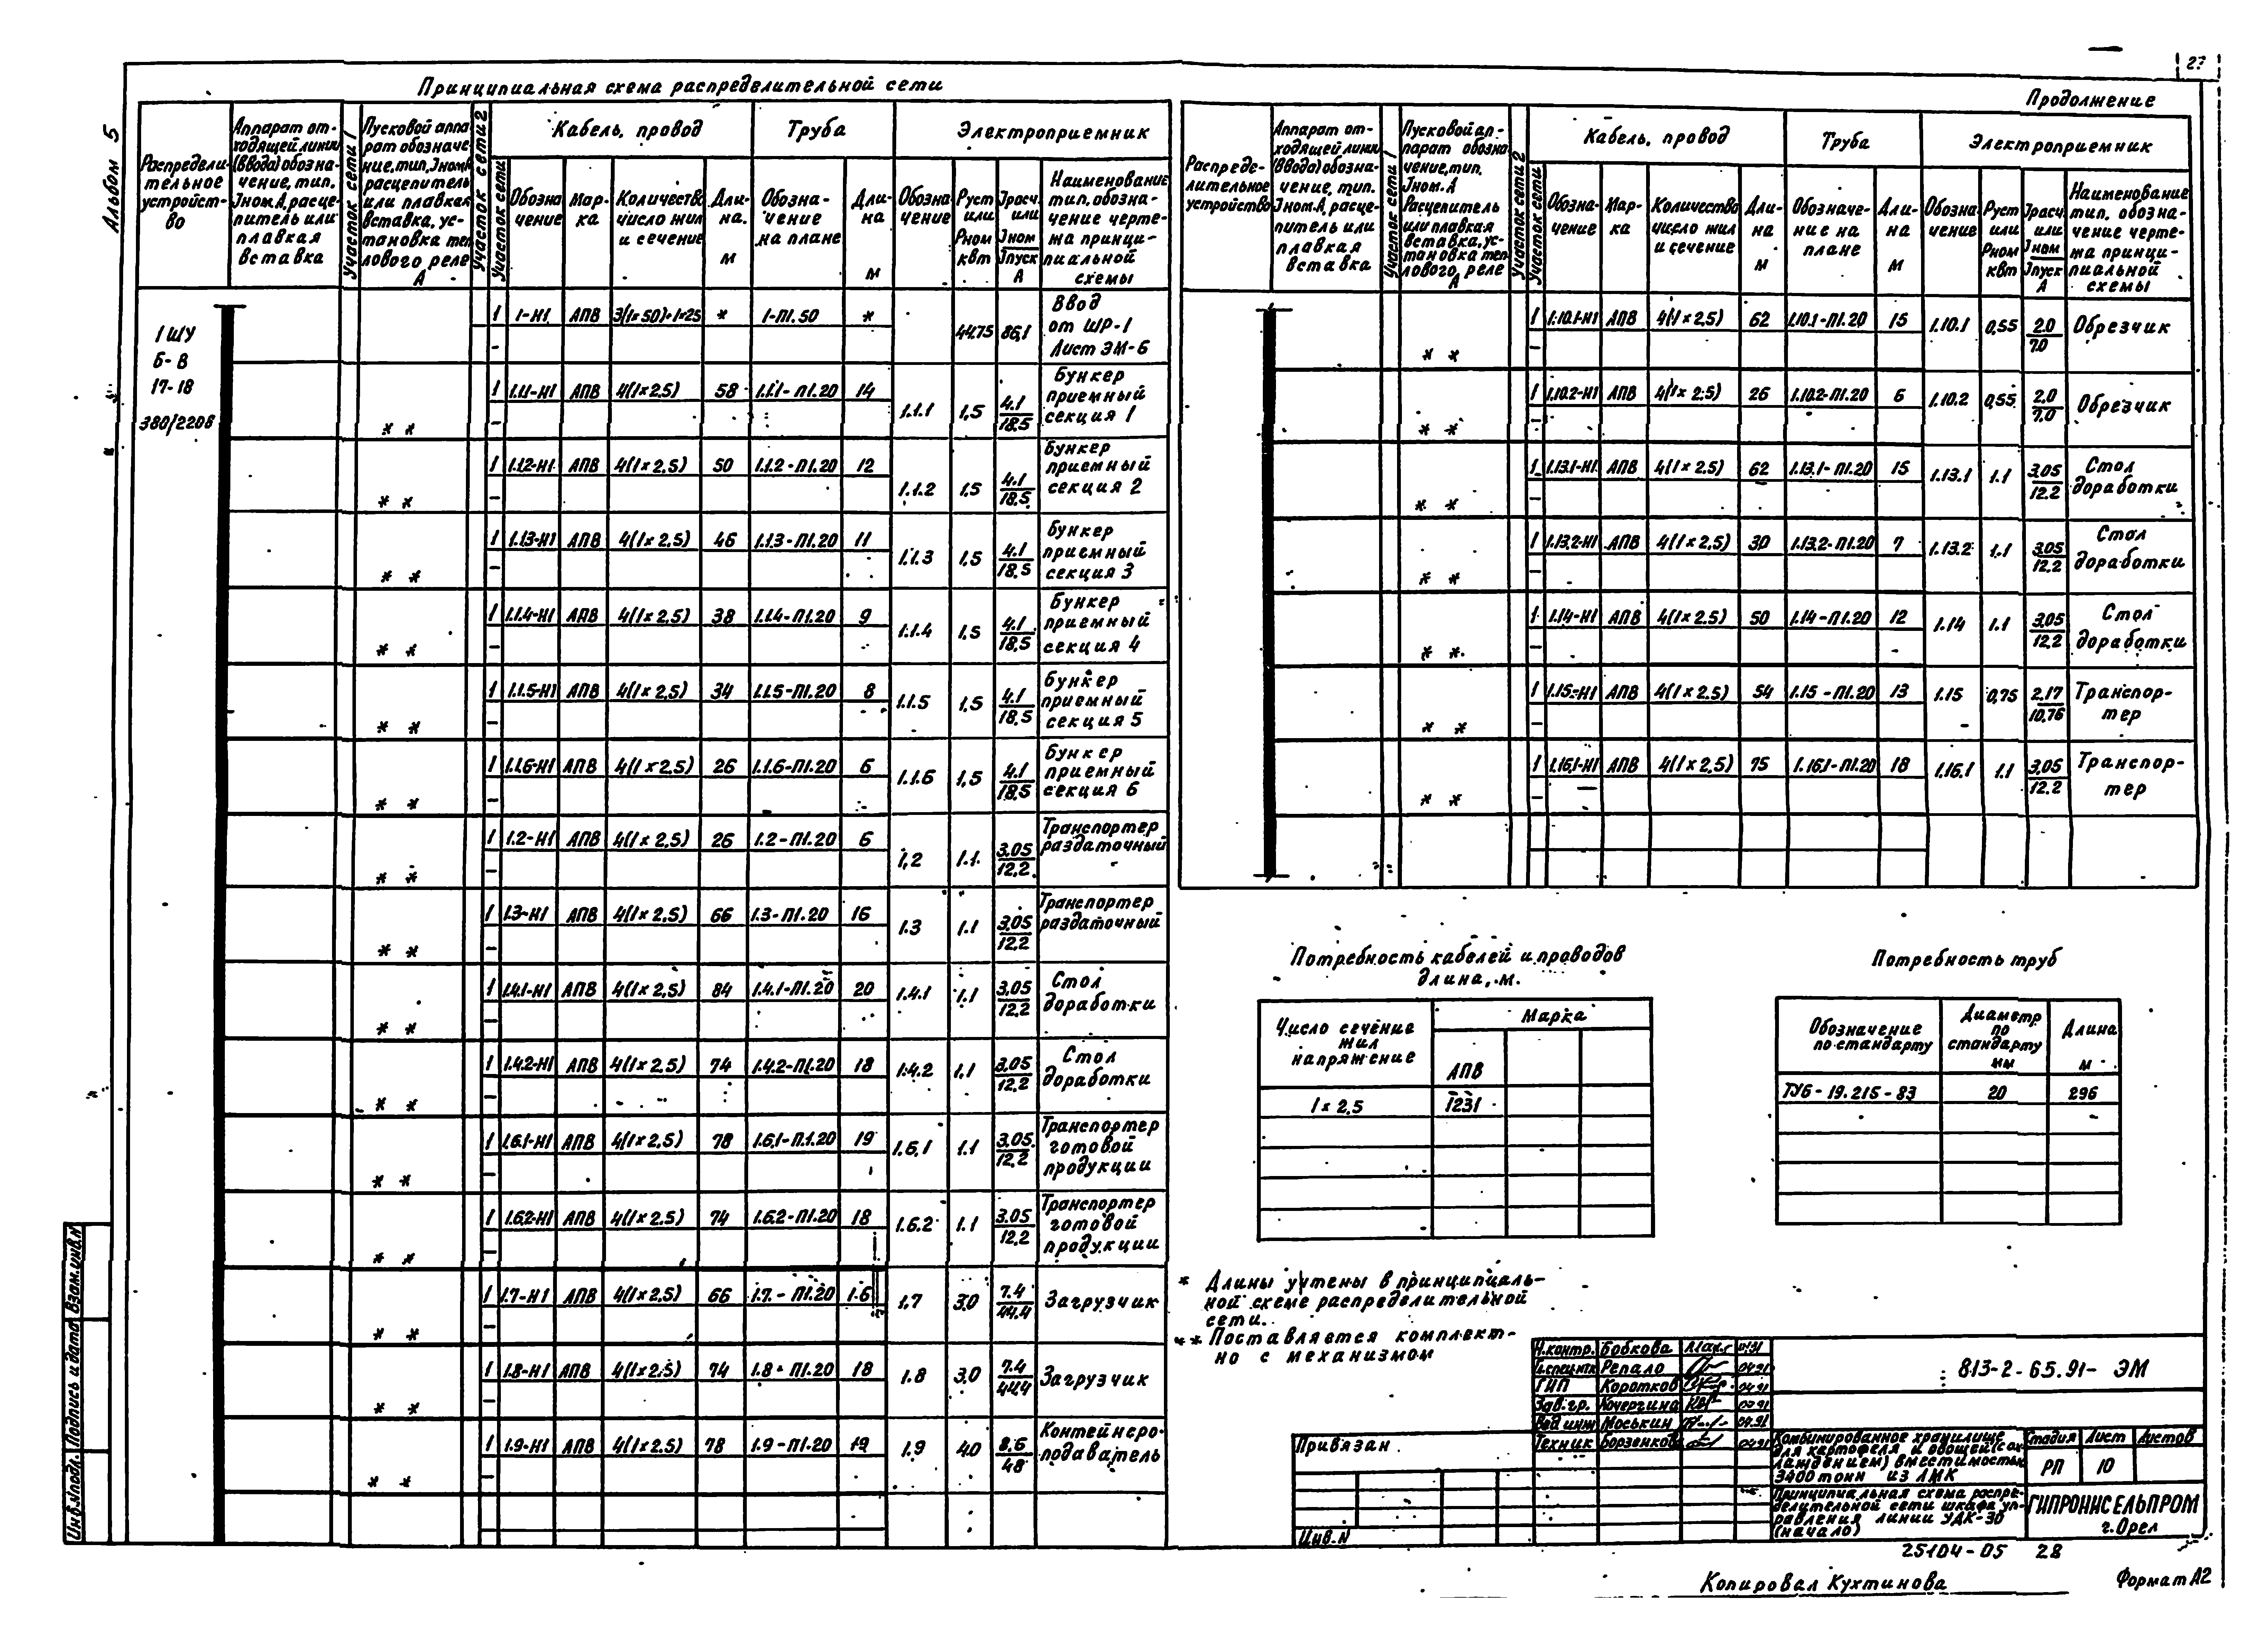 27
Альбом 5
Принципиальная схема распределительной сети
Продолжение
Распредели-
тельное
устройст-
во
Аппарат от-
ходящей линии
(ввода) обозна-
чение, тип.
Iном. А, расце-
питель или
плавкая
вставка
Участок сети 1
Пусковой аппа
рат обозначе-
ние, тип, Iном, А
расцепитель
или плавкая
вставка, ус-
тановка теп
лового реле
А
Участок сети 2
Участок сети
Кабель, провод
Обозна
чение
Мар-
ка
Количество
число жил
и сечение
Дли-
на.
м
Труба
Обозна-
чение
на плане
Дли-
на
м
Электроприемник
Обозна
чение
Руст
или
Рном
квт
Iрасч.
или
Iном
Iпуск
А
Наименование
тип. обозна-
чение черте-
жа принци-
пиальной
схемы
1 ШУ
Б-В
17-18
380/220В
1 1-Н1 АПВ 3(1×50)+1×25 * 1-П1.50 * 44.75 86,1 Ввод
от ШР-1
Лист ЭМ-6
1 1.1.1-Н1 АПВ 4(1×2.5) 58 1.1.1-П1.20 14 1.1.1 1,5 4.1/18.5 Бункер
приемный
секция 1
* *
1 1.1.2-Н1 АПВ 4(1×2,5) 50 1.1.2-П1.20 12 1.1.2 1,5 4.1/18.5 Бункер
приемный
секция 2
* *
1 1.1.3-Н1 АПВ 4(1×2,5) 46 1.1.3-П1.20 11 1.1.3 1,5 4.1/18.5 Бункер
приемный
секция 3
* *
1 1.1.4-Н1 АПВ 4(1×2,5) 38 1.1.4-П1.20 9 1.1.4 1,5 4.1/18,5 Бункер
приемный
секция 4
* *
1 1.1.5-Н1 АПВ 4(1×2,5) 34 1.1.5-П1.20 8 1.1.5 1,5 4.1/18,5 Бункер
приемный
секция 5
* *
1 1.1.6-Н1 АПВ 4(1×2,5) 26 1.1.6-П1.20 6 1.1.6 1,5 4.1/18.5 Бункер
приемный
секция 6
* *
1 1.2-Н1 АПВ 4(1×2,5) 26 1.2-П1.20 6 1,2 1.1 3.05/12.2 Транспортер
раздаточный
* *
1 1.3-Н1 АПВ 4(1×2,5) 66 1.3-П1.20 16 1.3 1.1 3.05/12.2 Транспортер
раздаточный
* *
1 1.4.1-Н1 АПВ 4(1×2,5) 84 1.4.1-П1.20 20 1.4.1 1.1 3.05/12.2 Стол
доработки
* *
1 1.4.2-Н1 АПВ 4(1×2,5) 74 1.4.2-П1.20 18 1.4.2 1,1 3.05/12.2 Стол
доработки
* *
1 1.6.1-Н1 АПВ 4(1×2,5) 78 1.6.1-П.1.20 19 1.6.1 1.1 3.05/12.2 Транспортер
готовой
продукции
* *
1 1.6.2-Н1 АПВ 4(1×2.5) 74 1.6.2-П1.20 18 1.6.2 1.1 3.05/12.2 Транспортер
готовой
продукции
* *
1 1.7-Н1 АПВ 4(1×2,5) 66 1.7.-П1.20 1.6 1,7 3.0 7.4/44.4 Загрузчик
* *
1 1.8-Н1 АПВ 4(1×2.5) 74 1.8-П1.20 18 1.8 3.0 7.4/44.4 Загрузчик
* *
1 1.9-Н1 АПВ 4(1×2.5) 78 1.9-П1.20 19 1.9 4.0 8.6/48 Контейнеро-
подаватель
* *
Распреде-
лительное
устройство
Аппарат от-
ходящей линии
(ввода) обозна-
чение, тип.
Iном. А, расце-
питель или
плавкая
вставка
Участок сети 1
Пусковой ап-
парат обозна
чение, тип.
Iном. А
Расцепитель
или плавкая
вставка, ус-
тановка теп
лового реле
А
Участок сети 2
Участок сети
Кабель, провод
Обозна-
чение
Мар-
ка
Количество
число жил
и сечение
Дли-
на
м
Труба
Обозначе-
ние на
плане
Дли-
на
м
Электроприемник
Обозна-
чение
Руст
или
Рном
квт
Iрасч.
или
Iном
Iпуск
А
Наименование
тип. обозна-
чение черте-
жа принци-
пиальной
схемы
1 1.10.1-Н1 АПВ 4(1×2,5) 62 1.10.1-П1.20 15 1.10.1 0,55 2.0/7.0 Обрезчик
* *
1 1.10.2-Н1 АПВ 4(1×2.5) 26 1.10.2-П1.20 6 1.10.2 0,55 2.0/7.0 Обрезчик
* *
1 1.13.1-Н1 АПВ 4(1×2,5) 62 1.13.1-П1.20 15 1.13.1 1.1 3.05/12.2 Стол
доработки
* *
1 1.13.2-Н1 АПВ 4(1×2,5) 30 1.13.2-П1.20 7 1.13.2 1.1 3.05/12.2 Стол
доработки
* *
1 1.14-Н1 АПВ 4(1×2,5) 50 1.14-П1.20 12 1.14 1.1 3.05/12.2 Стол
доработки
* *
1 1.15-Н1 АПВ 4(1×2,5) 54 1.15-П1.20 13 1.15 0,75 2.17/10.76 Транспор-
тер
* *
1 1.16.1-Н1 АПВ 4(1×2,5) 75 1.16.1-П1.20 18 1.16.1 1.1 3.05/12.2 Транспор-
тер
* *
Потребность кабелей и проводов
длина, м.
Число сечение
жил
напряжение
Марка
АПВ
1×2,5 1231
Потребность труб
Обозначение
по стандарту
Диаметр
по
стандарту
мм
Длина
м
ТУ6-19.215-83 20 296
* Длины учтены в принципиаль-
ной схеме распределительной
сети.
** Поставляется комплект-
но с механизмом
Н.контр. Бобкова 04.91
Гл.спец.нтк Репало 04.91
ГИП Коротков 04.91
Зав.гр. Кочергина 04.91
Вед инж Моськин 04.91
Техник Борзенкова 04.91
813-2-65.91- ЭМ
Комбинированное хранилище
для картофеля и овощей (с ох-
лаждением) вместимостью
3400 тонн из ЛМК
Стадия Лист Листов
РП 10
Принципиальная схема распре-
делительной сети шкафа уп-
равления линии УДК-30
(начало)
ГИПРОНИСЕЛЬПРОМ
г. Орел
Привязан
Инв. N
Взам.инв.N
Подпись и дата
Инв.Nподл.
25104-05 28
Копировал Кухтинова
Формат А2